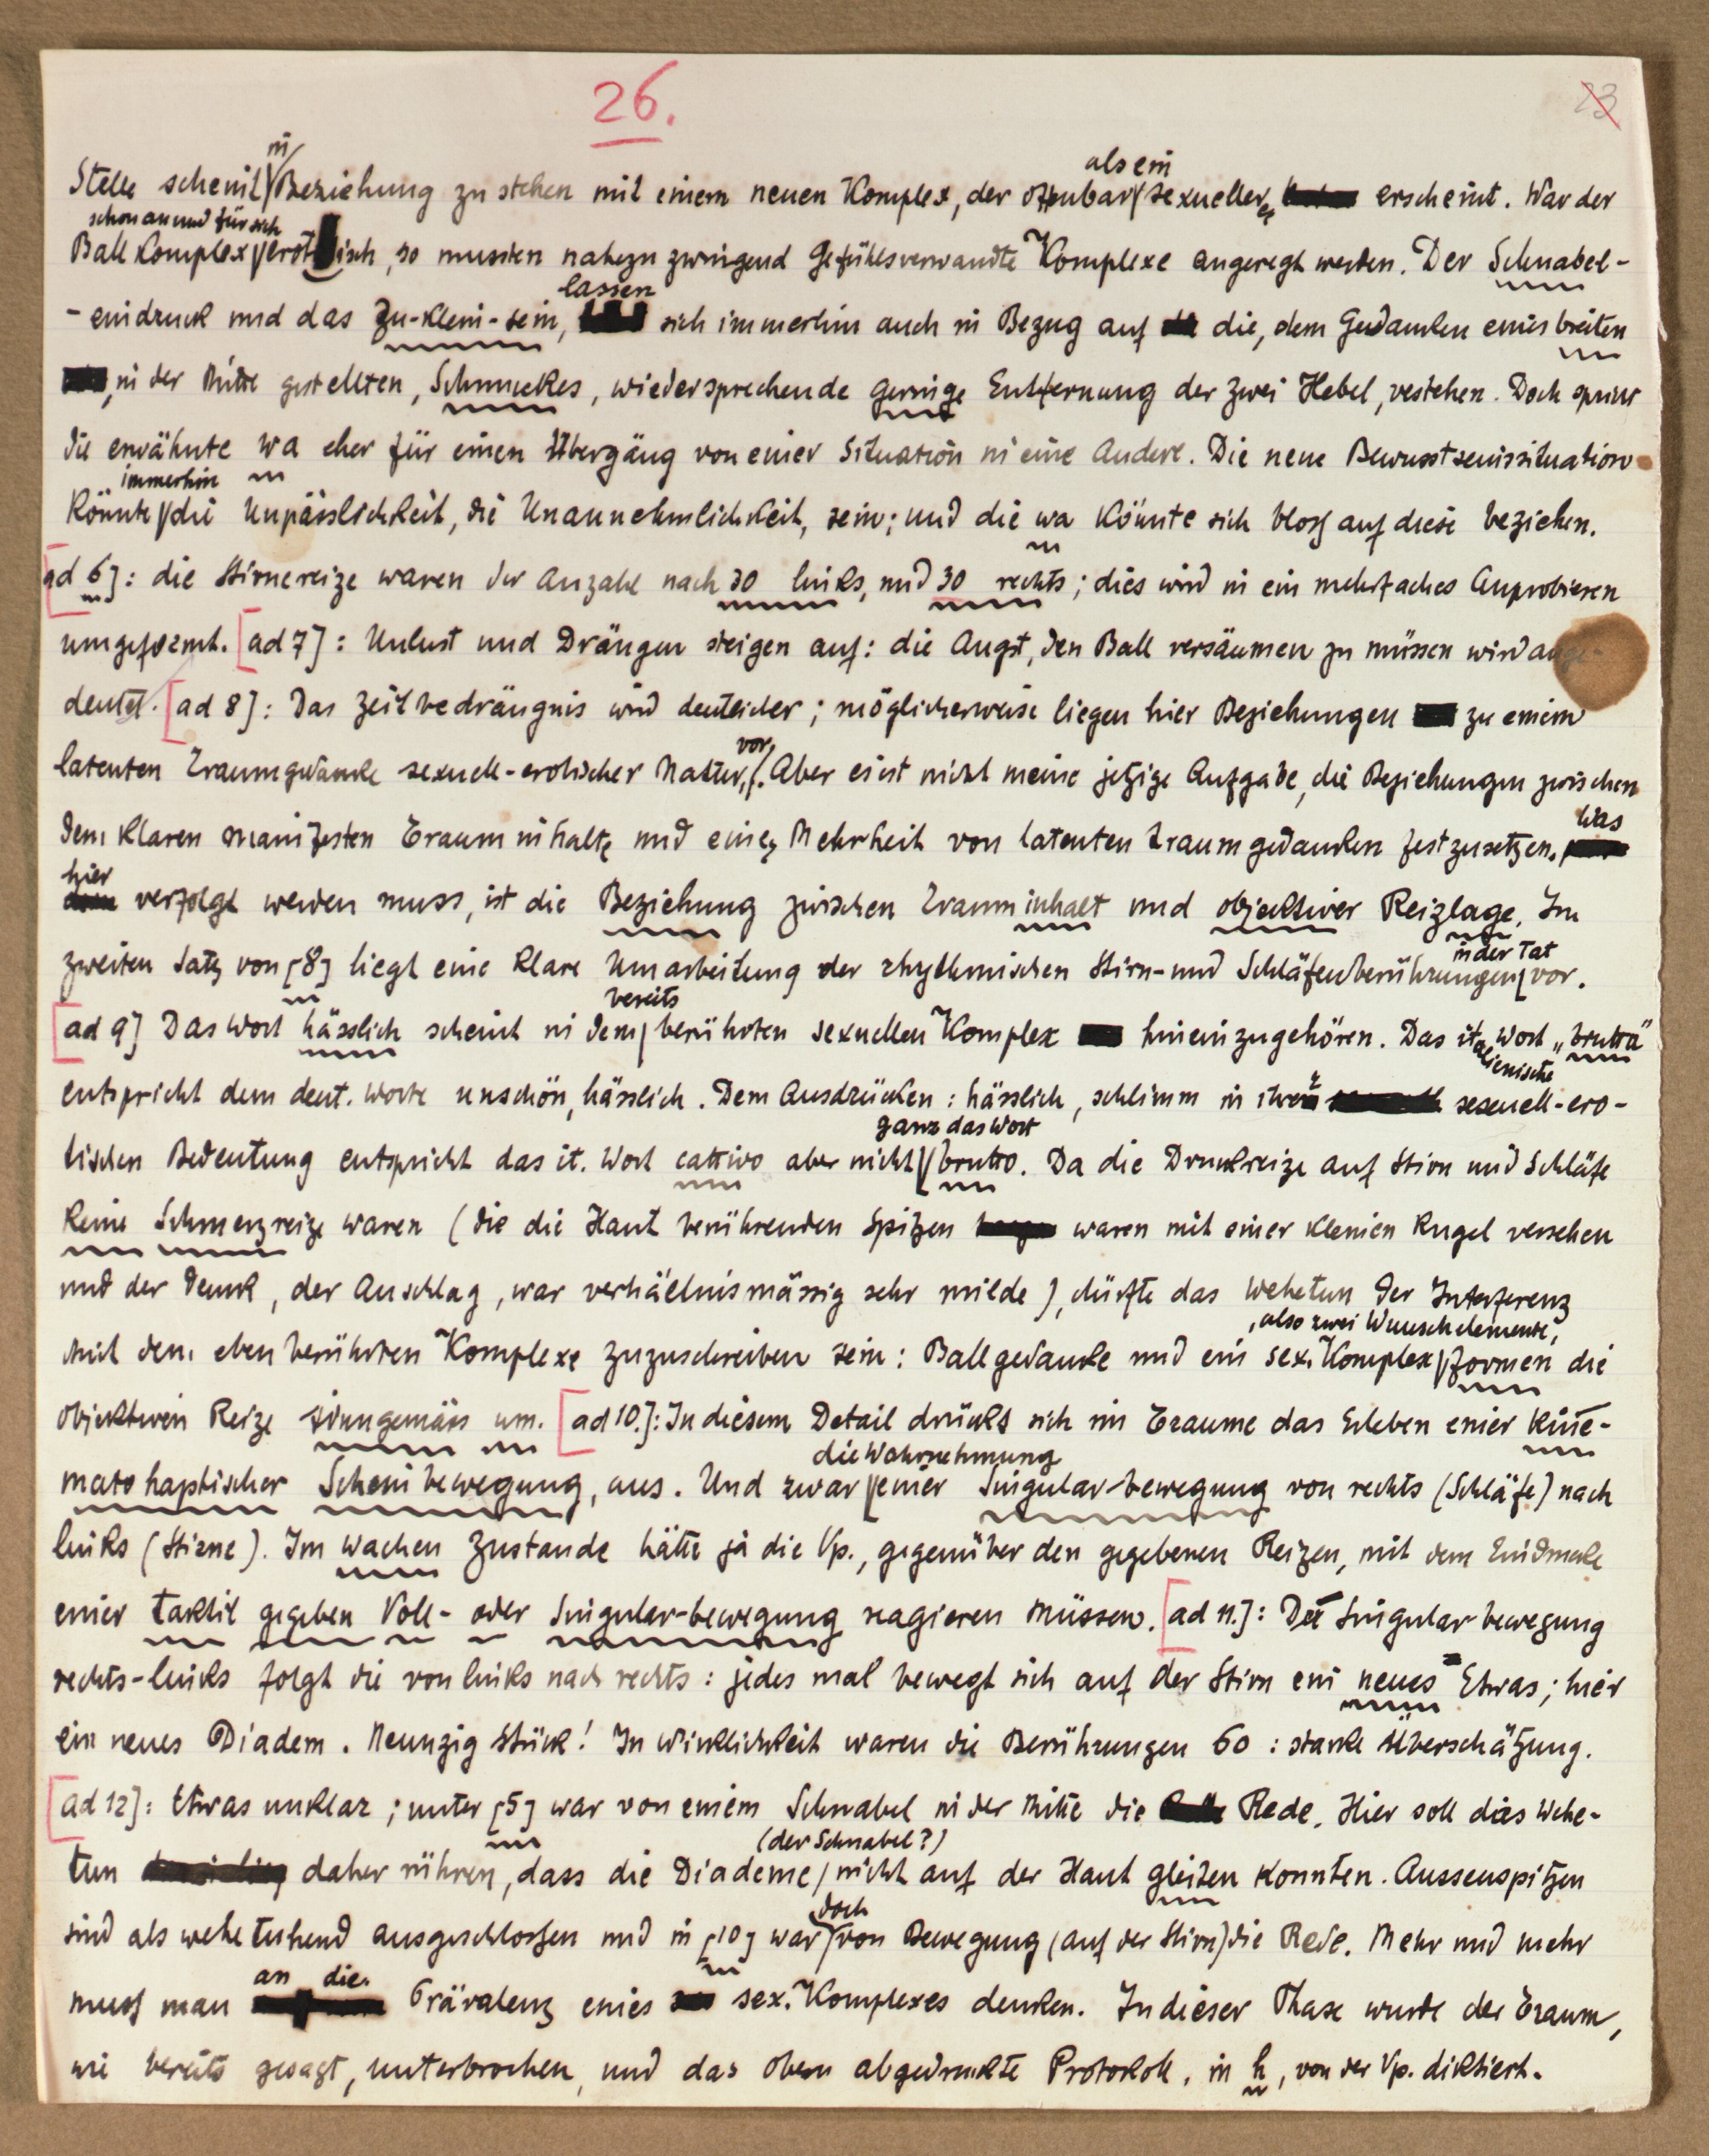 26.
23
Stelle scheint in Beziehung zu stehen mit einem neuen Komplex, der offenbar als ein sexueller erscheint. War der
Ballkomplex schon an und für sich erotisch, so mussten nahezu zwingend gefühlsverwandte Komplexe angeregt werden. Der Schnabel-
-eindruck und das Zu-klein-sein, lassen sich immerhin auch in Bezug auf die, dem Gedanken eines breiten
in der Mitte gestellten, Schmuckes, wiedersprechende geringe Entfernung der zwei Hebel, vestehen. Doch spricht
die erwähnte wa eher für einen Übergang von einer Situation in eine Andere. Die neue Bewusstseinssituation
könnte immerhin die Unpässlichkeit, die Unannehmlichkeit, sein; und die wa könnte sich bloss auf diese beziehen.
[ad 6]: die Stirnereize waren der Anzahl nach 30 links, und 30 rechts; dies wird in ein mehrfaches Anprobieren
umgeformt. [ad 7]: Unlust und Drängen steigen auf: die Angst, den Ball versäumen zu müssen wird ange-
deutet. [ad 8]: Das Zeitbedrängnis wird deutlicher; möglicherweise liegen hier Beziehungen zu einem
latenten Traumgedanke sexuell-erotischer Natur, vor. Aber es ist nicht meine jetzige Aufgabe, die Beziehungen zwischen
dem klaren manifesten Trauminhalte und einer Mehrheit von latenten Traumgedanken festzusetzen. Was
hier verfolgt werden muss, ist die Beziehung zwischen Trauminhalt und objektiver Reizlage. Im
zweiten Satz von [8] liegt eine klare Umarbeitung der rhythmischen Stirn- und Schläfenberührungen in der Tat vor.
[ad 9] Das Wort hässlich scheint in dem bereits berührten sexuellen Komplex hineinzugehören. Das italienische Wort „brutta"
entspricht dem deut. Worte unschön, hässlich. Dem Ausdrücken: hässlich, schlimm in ihrer sexuell-ero-
tischen Bedeutung entspricht das it. Wort cattivo aber nicht ganz das Wort brutto. Da die Druckreize auf Stirn und Schläfe
keine Schmerzreize waren (die die Haut berührenden Spitzen waren mit einer kleinen Kugel versehen
und der Druck, der Anschlag, war verhältnismässig sehr milde), dürfte das Wehetun der Interferenz
mit dem eben berührten Komplexe zuzuschreiben sein: Ballgedanke und ein sex. Komplex, also zwei Wunschelemente, formen die
objektiven Reize sinngemäss um. [ad 10.]: In diesem Detail drückt sich im Traume das Erleben einer kine-
matohaptischer Scheinbewegung, aus. Und zwar die Wahrnehmung einer Singular-bewegung von rechts (Schläfe) nach
links (Stirne). Im wachen Zustande hätte ja die Vp., gegenüber den gegebenen Reizen, mit dem Eindrucke
einer taktil gegeben Voll- oder Singular-bewegung reagieren müssen. [ad 11.]: Der Singularbewegung
rechts-links folgt die von links nach rechts: jedes mal bewegt sich auf der Stirn ein neues Etwas; hier
ein neues Diadem. Neunzig Stück! In Wirklichkeit waren die Berührungen 60: starke Überschätzung.
[ad 12]: Etwas unklar; unter [5] war von einem Schnabel in der Mitte die Rede. Hier soll das Wehe-
tun daher rühren, dass die Diademe (der Schnabel?) nicht auf der Haut gleiten konnten. Aussenspitzen
sind als wehe tuhend ausgeschlossen und in [10] war doch von Bewegung (auf der Stirn) die Rede. Mehr und mehr
muss man an die Prävalenz eines sex. Komplexes denken. In dieser Phase wurde der Traum,
wie bereits gesagt, unterbrochen, und das oben abgedruckte Protokoll, in h, von der Vp. diktiert.